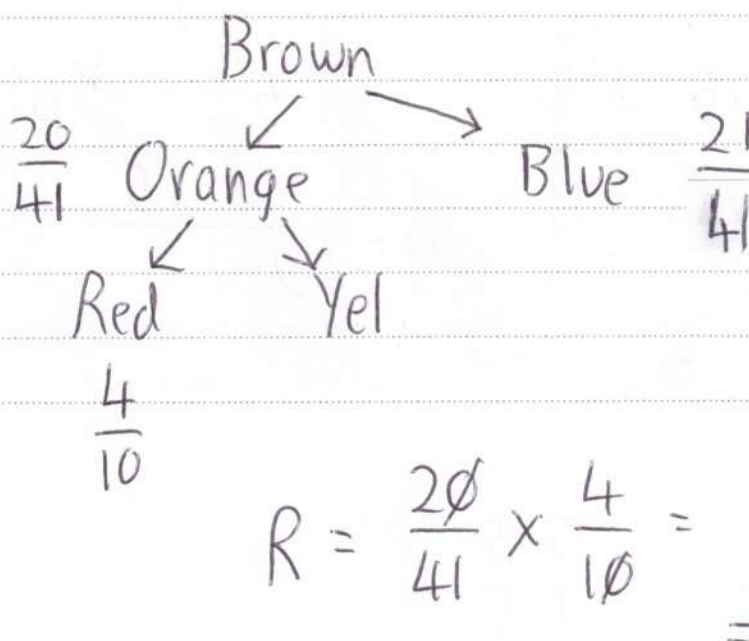 Brown
20/41 Orange Blue 21/41
Red Yel
4/10
R = 20/41 × 4/10 =
=